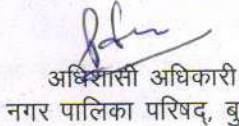 अधिशासी अधिकारी
नगर पालिका परिषद्, बु